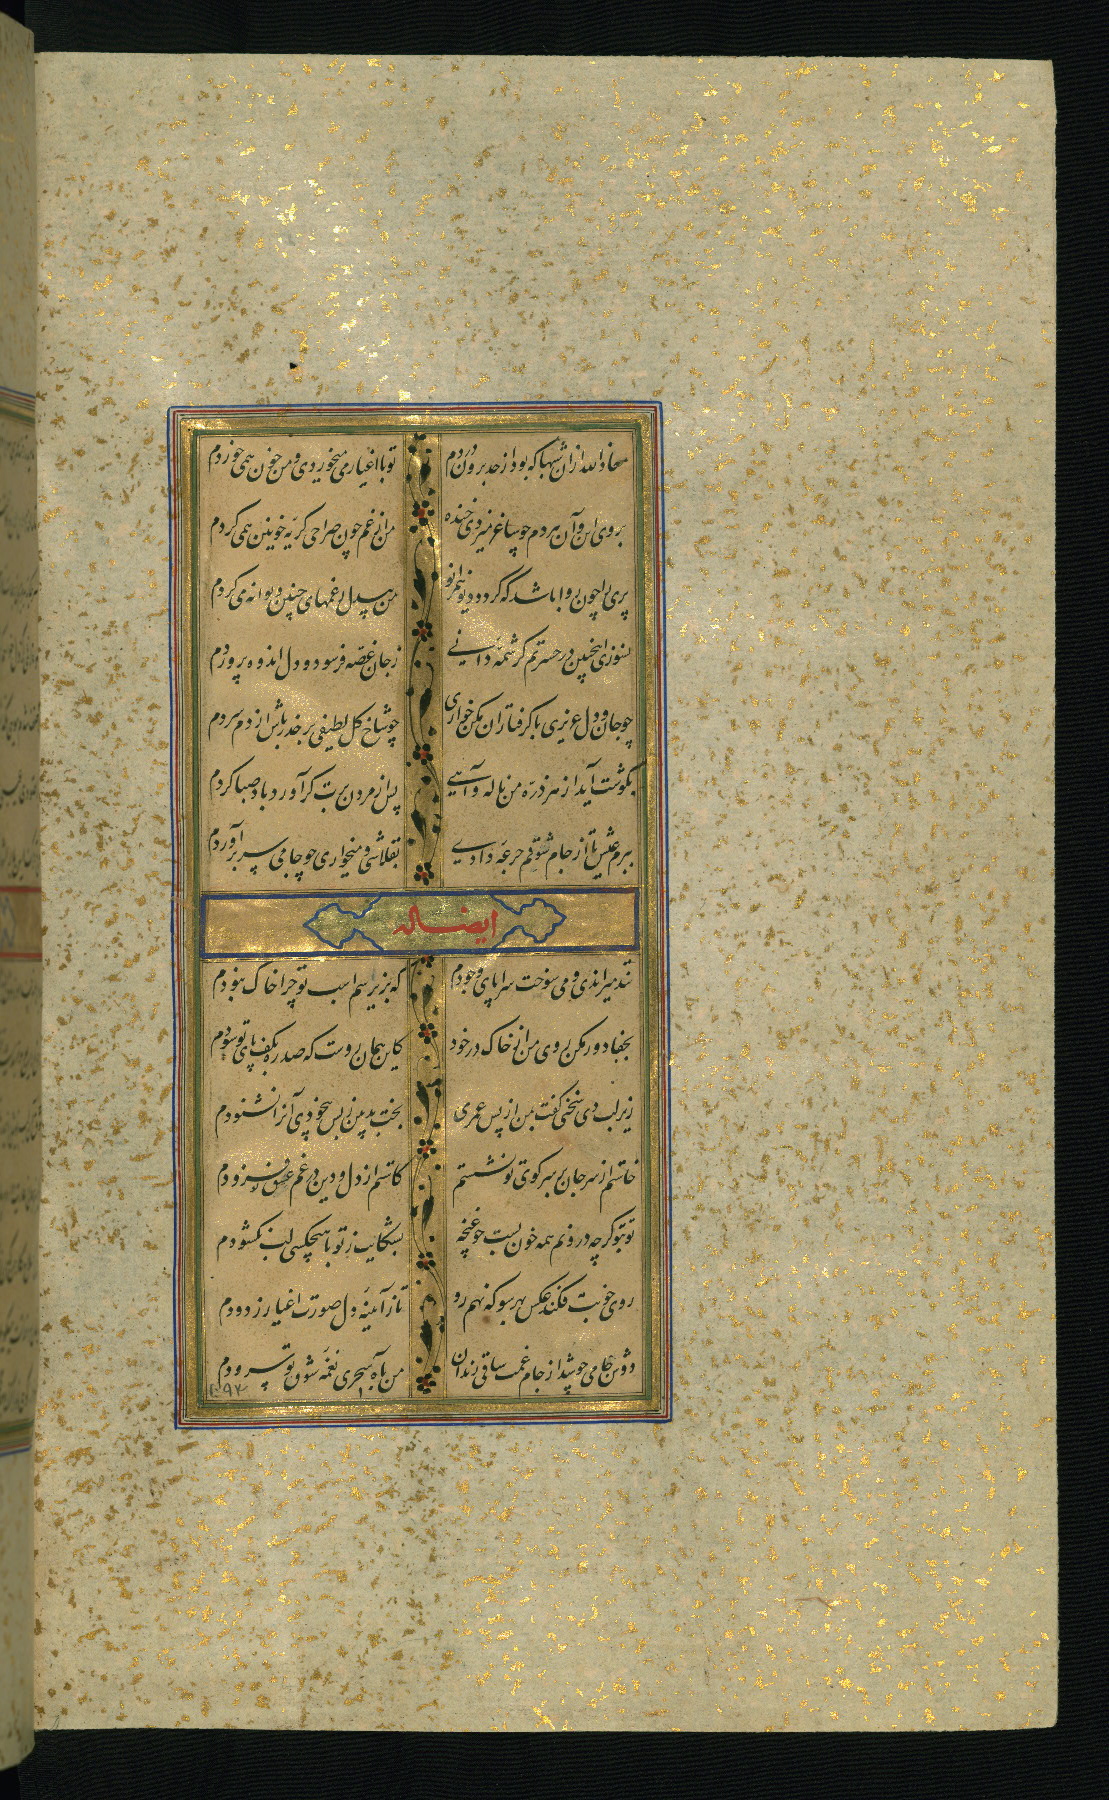 معاذ الله ازان شبها که بود از حد برون دردم
تو با اغیار می میخوردی و من خون همی خوردم
بروی این و آن هردم چو ساغر میزدی خنده
من از غم چون صراحی گریه خونین همی کردم
پری را چون روا باشد که گردد دیو
من بیدل زغمهای چنین دیوانه می گردم
هنوزی اینچنین در حسرتم گر شمه دانی
ز جان غصه فرسود و دل اندوه پروردم
چو جان و دل عزیزی با گرفتاران مکن خواری
چو شاخ گل لطیفی بر حذر باش از دم سردم
بگوشت آید از هر ذره من ناله و آهی
پس از مردن برت گر آورد باد صبا گردم
ببزم عیش تا از جام شوقم جرعه دادی
بقلاشی و میخواری چو جامی سر برآوردم
ایضا له
تند میراندی و می سوخت سراپای وجودم
که بزیر سم اسب تو چرا خاک نبودم
بجفا دور مکن روی من از خاک در خود
کاین همان روست که صد ره بکف پای تو سودم
زیر لب دی سخنی گفت بمن از پس عمری
بخت بد بین ز پس بیخودی آنرا نشنودم
خاستم از سر جان بر سر کوی تو نشستم
کاستم از دل و دین در غم عشق تو فزودم
تو بتو گرچه درونم همه خون بست چو غنچه
بشکایت ز تو با هیچکسی لب نگشودم
روی خوبت فکند عکس بهر سو که نهم رو
تا ز آیینه دل صورت اغیار زدودم
دوش جامی چو شد از جام غمت ساقی رندان
من باه سحری نغمه شوق تو سرودم